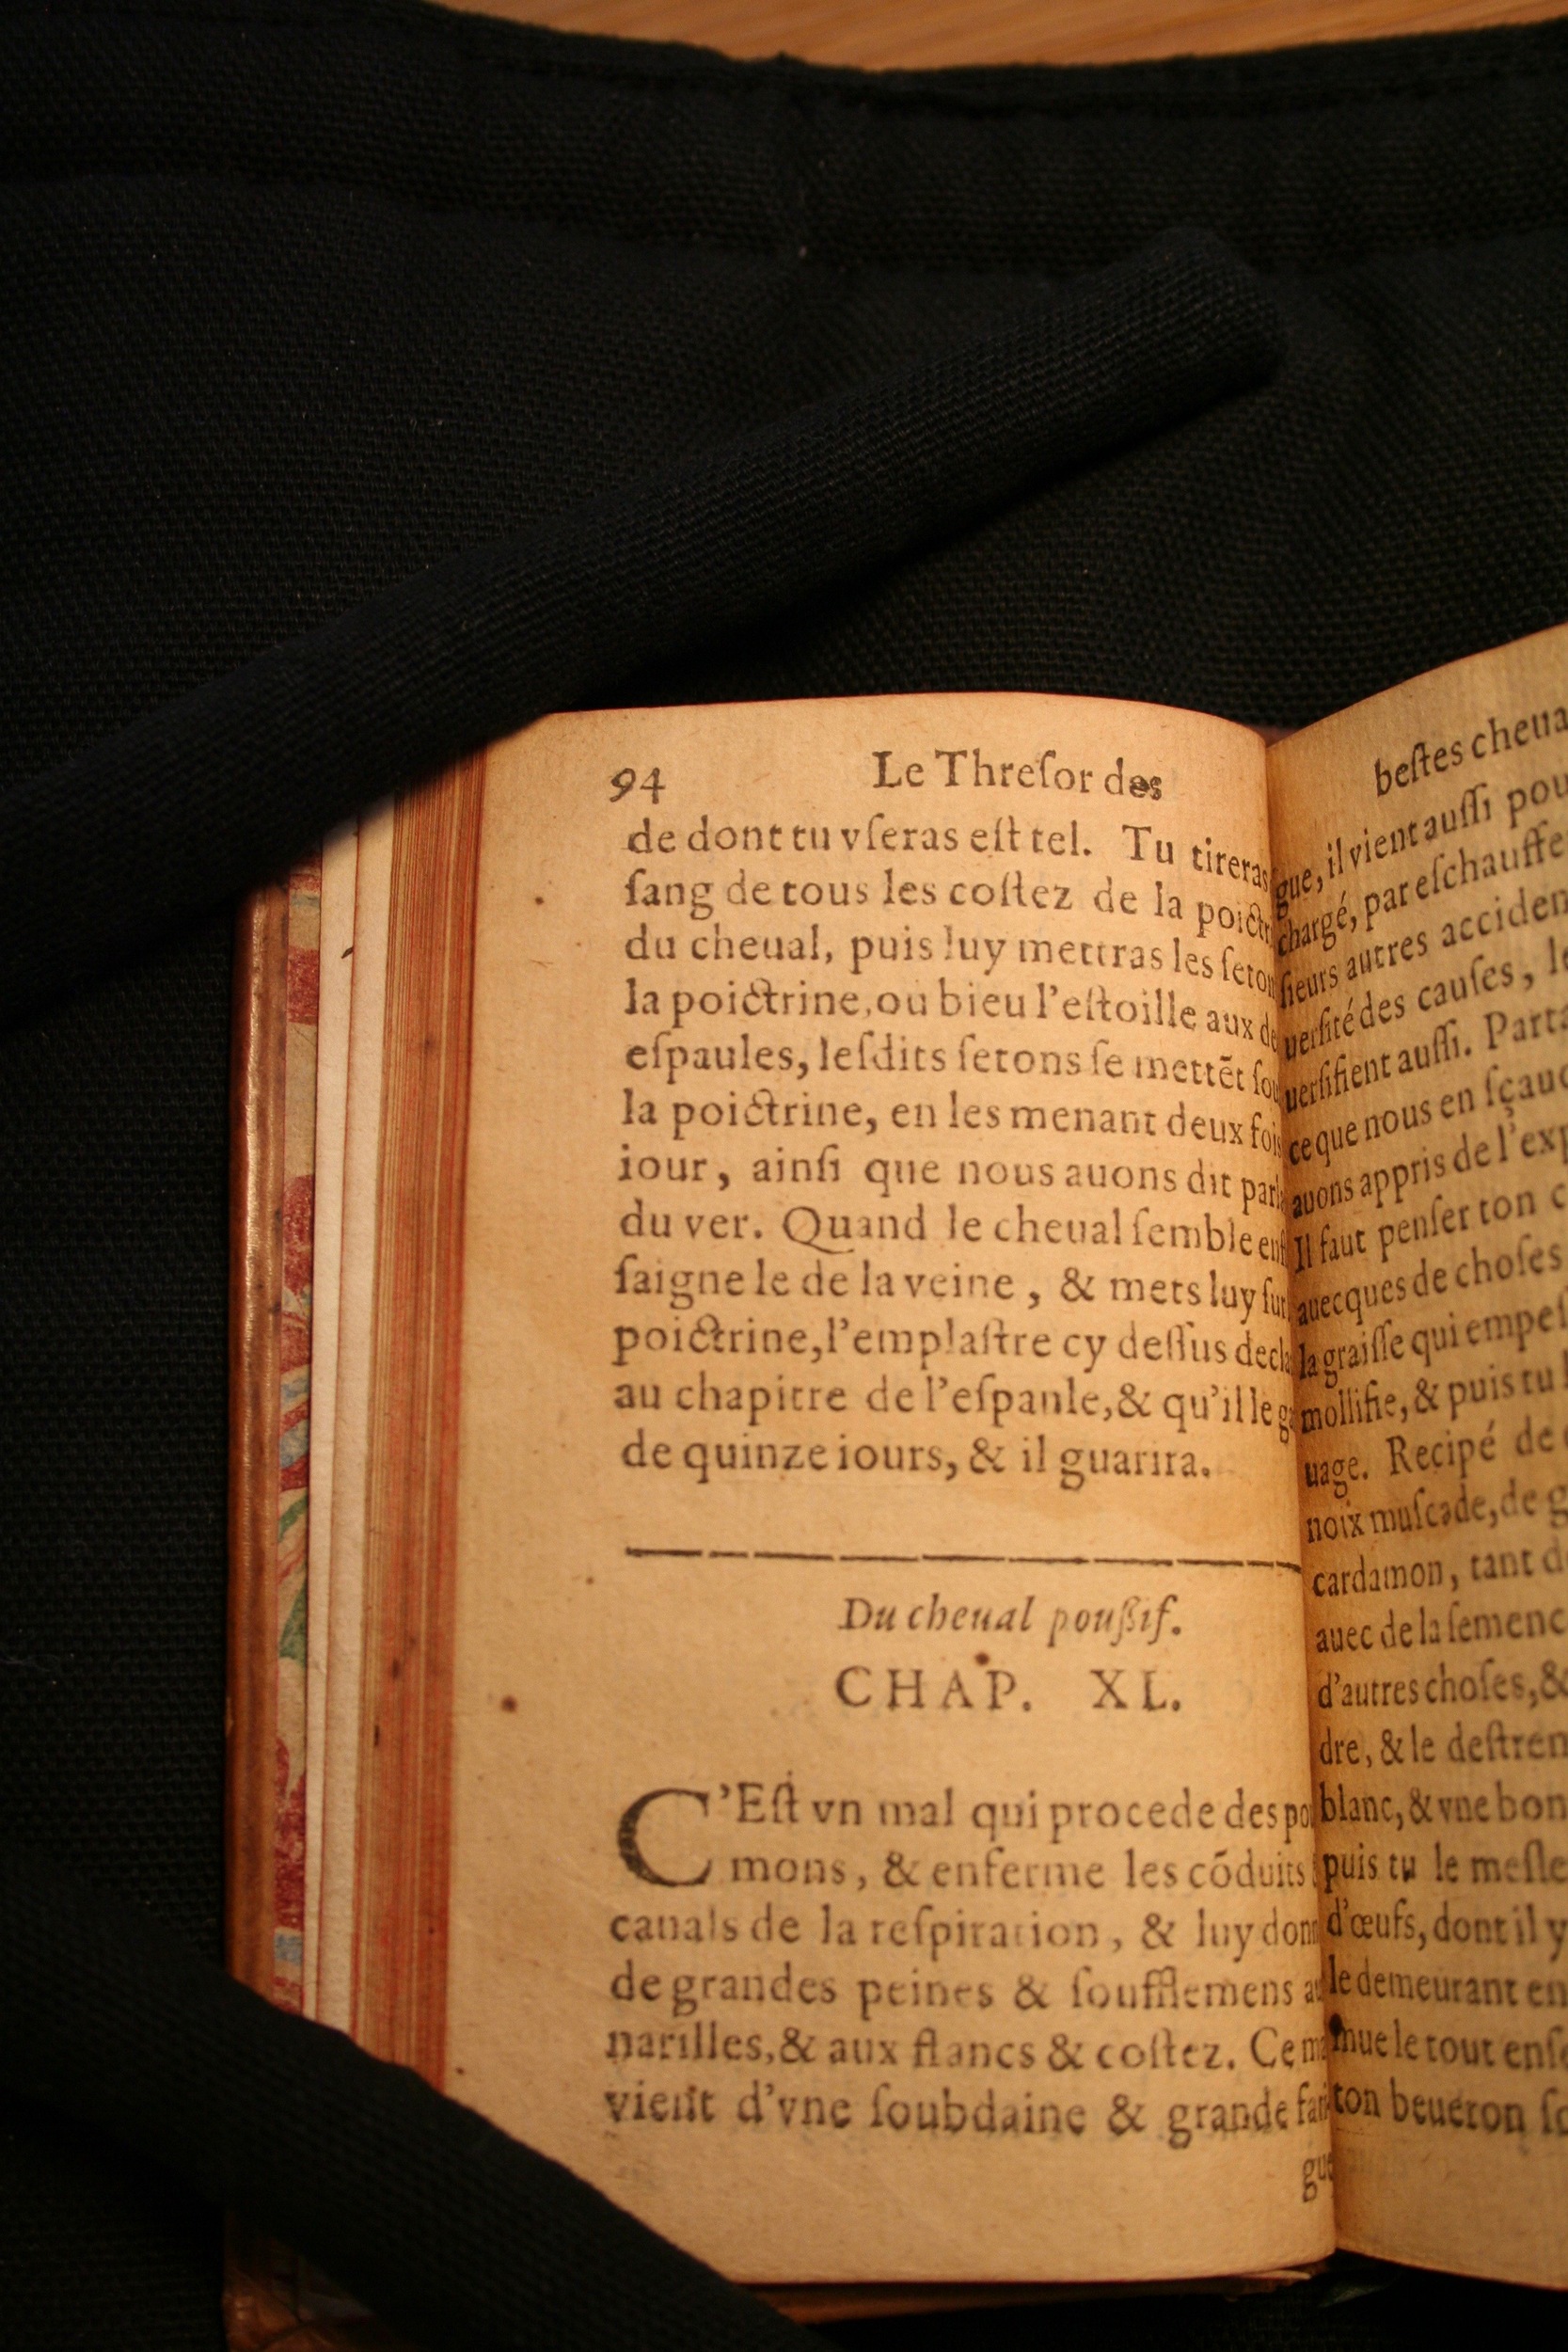 94 Le Threſor des
de dont tu vſeras eſt tel. Tu tireras
ſang de tous les coſtez de la
du cheual, puis luy mettras les
la poictrine, ou bieu l'eſtoille aux
eſpaules, leſdits ſetons ſe mettēt
la poictrine, en les menant deux fois
iour, ainſi que nous auons dit
du ver. Quand le cheual ſemble
ſaigne le de la veine, & mets luy
poictrine, l'emplaſtre cy deſſus
au chapitre de l'eſpanle, & qu'il le
de quinze iours, & il guarira.
Du cheual pouſſif.
CHAP. XL.
C'Eſt vn mal qui procede des
mons, & enferme les cōduits
canals de la reſpiration, & luy
de grandes peines & ſoufflemens
narilles, & aux flancs & coſtez. Ce
vient d'vne ſoubdaine & grande
beſtes
gue, il vient auſſi
chargé, par
ſieurs autres
uerſité des cauſes,
uerſifient auſſi.
ce que nous en
auons appris de
Il faut penſer ton
auecques de choſes
la graiſſe qui
mollifie, & puis tu
uage. Recipé de
noix muſcade, de
cardamon, tant
auec de la
d'autres choſes, &
dre, & le
blanc, & vne
puis tu le
d'œufs, dont il y
le demeurant en
mue le tout
ton beueron